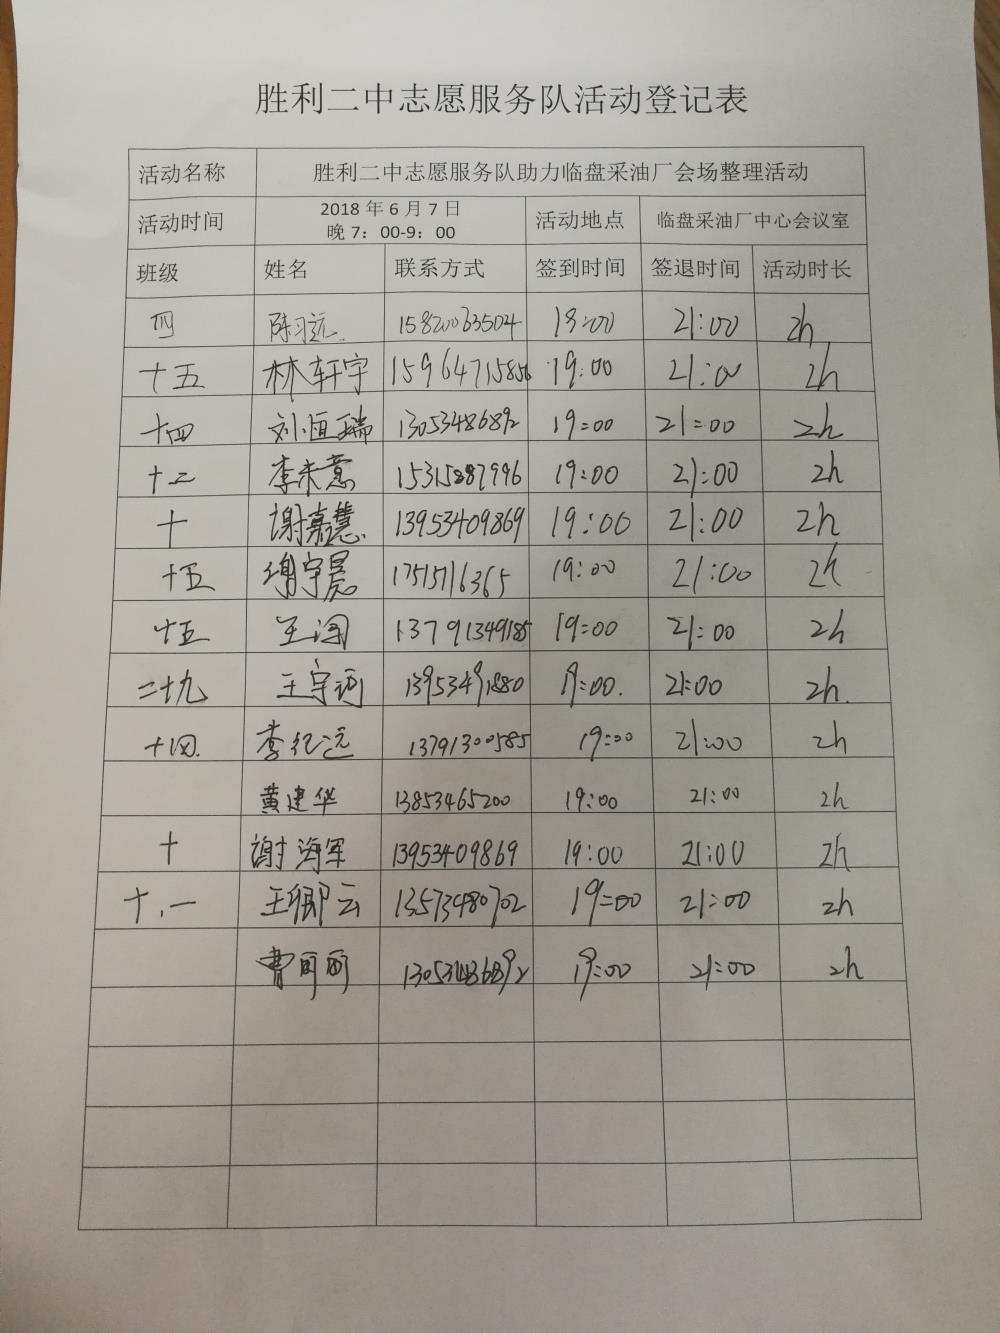 胜利二中志愿服务队活动登记表
活动名称 胜利二中志愿服务队助力临盘采油厂会场整理活动
活动时间 2018年6月7日 活动地点 临盘采油厂中心会议室
晚7：00-9：00
班级 姓名 联系方式 签到时间 签退时间 活动时长
四 陈习远 15820063504 19:00 21:00 2h
十五 林轩宇 15964715856 19:00 21:00 2h
十四 刘恒瑞 13053486892 19:00 21:00 2h
十二 李未意 15315887996 19:00 21:00 2h
十 谢嘉慧 13953409869 19:00 21:00 2h
十五 谢宇晨 17515716365 19:00 21:00 2h
十五 王 13791349185 19:00 21:00 2h
二十九 王宇 13953491880 19:00. 21:00 2h.
十四. 李纪远 13791300585 19:00 21:00 2h
黄建华 13853465200 19:00 21:00 2h
十 谢海军 13953409869 19:00 21:00 2h
十.一 王卿云 13573480702 19:00 21:00 2h
曹丽丽 13053486892 19:00 21:00 2h